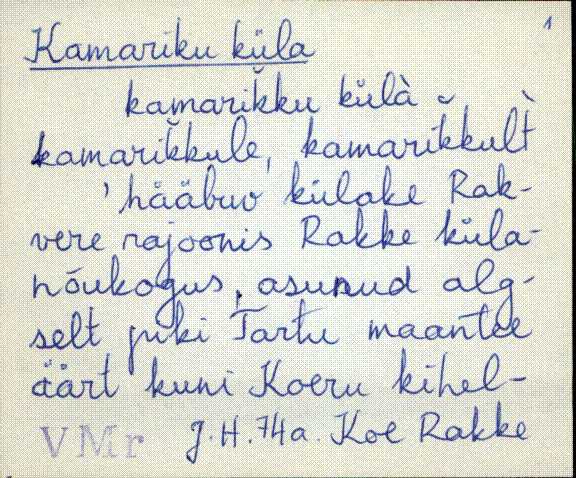 1
Kamariku küla
kamarik̆ku külà
kamarik̆kule, kamarik̆kult̀
'hääbuv külake Rak-
vere rajoonis Rakke küla-
nõukogus, asunud alg-
selt piki Tartu maantee
äärt kuni Koeru kihel-
VMr J.H. 74a. Koe Rakke